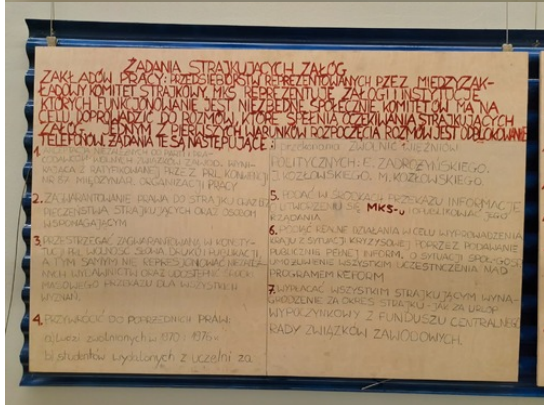 ŻĄDANIA STRAJKUJĄCYCH ZAŁÓG
ZAKŁADÓW PRACY: PRZEDSIĘBIORSTW REPREZENTOWANYCH PZEZ MIĘDZYZAK-
ŁADOWY KOMITET STRAJKOWY. MKS REPREZENTUJE ZAŁOGI I INSTYTUCJE
KTÓRYCH FUNKCJONOWANIE JEST NIEZBĘDNE SPOŁECZNIE KOMITETÓW MA NA
CELU DOPROWADZIĆ DO ROZMÓW, KTÓRE SPEŁNIĄ OCZEKIWANIA STRAJKUJĄCYCH
ZAŁÓG. JEDNYM Z PIERWSZYCH WARUNKÓW ROZPOCZĘCIA ROZMÓW JEST ODBLOKOWANIE
TELEFONÓW. ŻĄDANIA TE SĄ NASTĘPUJĄCE:
1. NIEZALEŻNYCH OD PARTII I PRA-
CODAWCÓW WOLNYCH ZWIĄZKÓW ZAWOD. WYNI-
KAJĄCA Z RATYFIKOWANEJ PRZEZ PRL KONWENCJI
NR 87 MIĘDZYNAR. ORGANIZACJI PRACY
2. ZAGWARANTOWANIE PRAWA DO STRAJKU ORAZ BEZ-
PIECZEŃSTWA STRAJKUJĄCYCH ORAZ OSOBOM
WSPOMAGAJĄCYM
3. PRZESTRZEGAĆ ZAGWARANTOWANĄ W KONSTY-
TUCJI PRL WOLNOŚĆ SŁOWA DRUKU I PUBLIKACJI,
A TYM SAMYM NIE REPRESJONOWAĆ NIEZALEŻ-
NYCH WYDAWNICTW ORAZ UDOSTĘPNIĆ ŚRODKI
MASOWEGO PRZEKAZU DLA WSZYSTKICH
WYZNAŃ.
4. PRZYWRÓCIĆ DO POPRZEDNICH PRAW:
a) ludzi zwolnionych w 1970 i 1976r
b) studentów wydalonych z uczelni za
przekonania ZWOLNIĆ WIĘŹNIÓW
POLITYCZNYCH: E. ZADROŻYŃSKIEGO.
J. KOZŁOWSKIEGO. M. KOZŁOWSKIEGO.
5. PODAĆ W ŚRODKACH PRZEKAZU INFORMACJĘ
O UTWORZENIU SIĘ MKS-u I OPUBLIKOWAĆ JEGO
RZĄDANIA.
6. PODJĄĆ REALNE DZIAŁANIA W CELU WYPROWADZENIA
KRAJU Z SYTUACJI KRYZYSOWEJ POPRZEZ PODAWANIE
PUBLICZNIE PEŁNEJ INFORM. O SYTUACJI SPOŁ-GOSP.
UMOŻLIWIENIE WSZYSTKIM UCZESTNICZENIA NAD
PROGRAMEM REFORM
7. WYPŁACAĆ WSZYSTKIM STRAJKUJĄCYM WYNA-
GRODZENIE ZA OKRES STRAJKU - JAK ZA URLOP
WYPOCZYNKOWY Z FUNDUSZU CENTRALNEJ
RADY ZWIĄZKÓW ZAWODOWYCH.